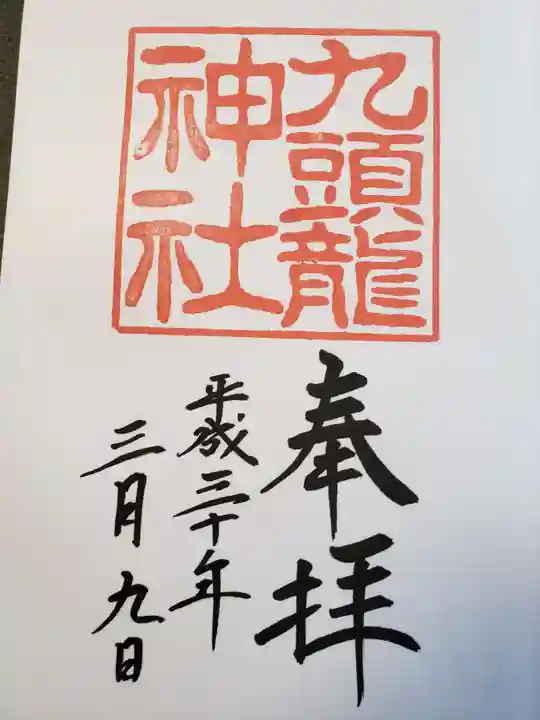 九頭龍
神社
奉拝
平成三十年
三月九日